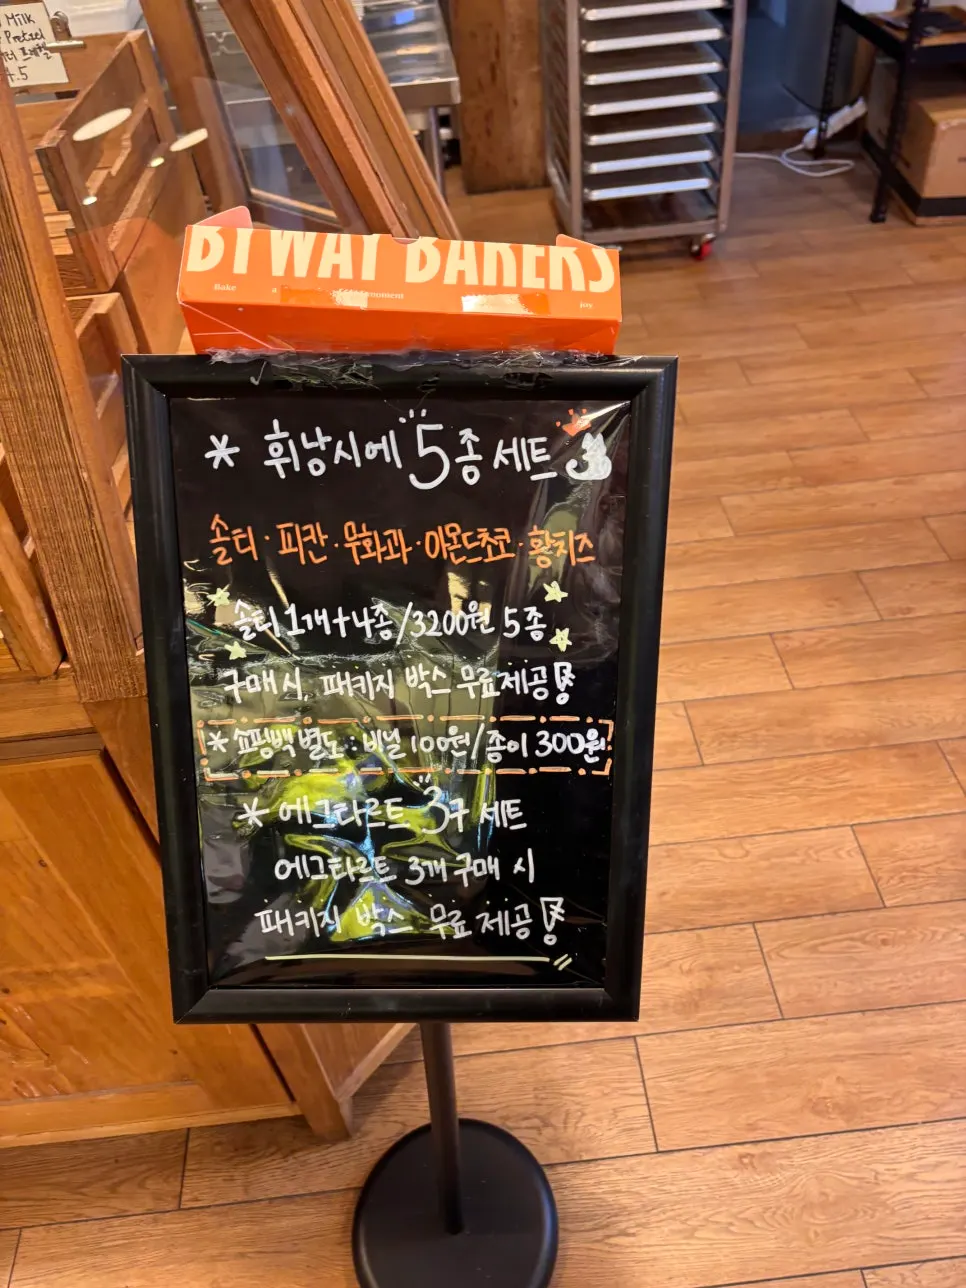 Milk
Pretzel
4.5
BYWAY BAKERS
Bake a moment joy
* 휘낭시에 5종 세트
솔티 · 피칸 · 무화과 · 아몬드초코 · 황치즈
솔티 1개 + 4종 / 3200원 5종
구매 시, 패키지 박스 무료 제공!
* 쇼핑백 별도 : 비닐 100원 / 종이 300원
* 에그타르트 3구 세트
에그타르트 3개 구매 시
패키지 박스 무료 제공!